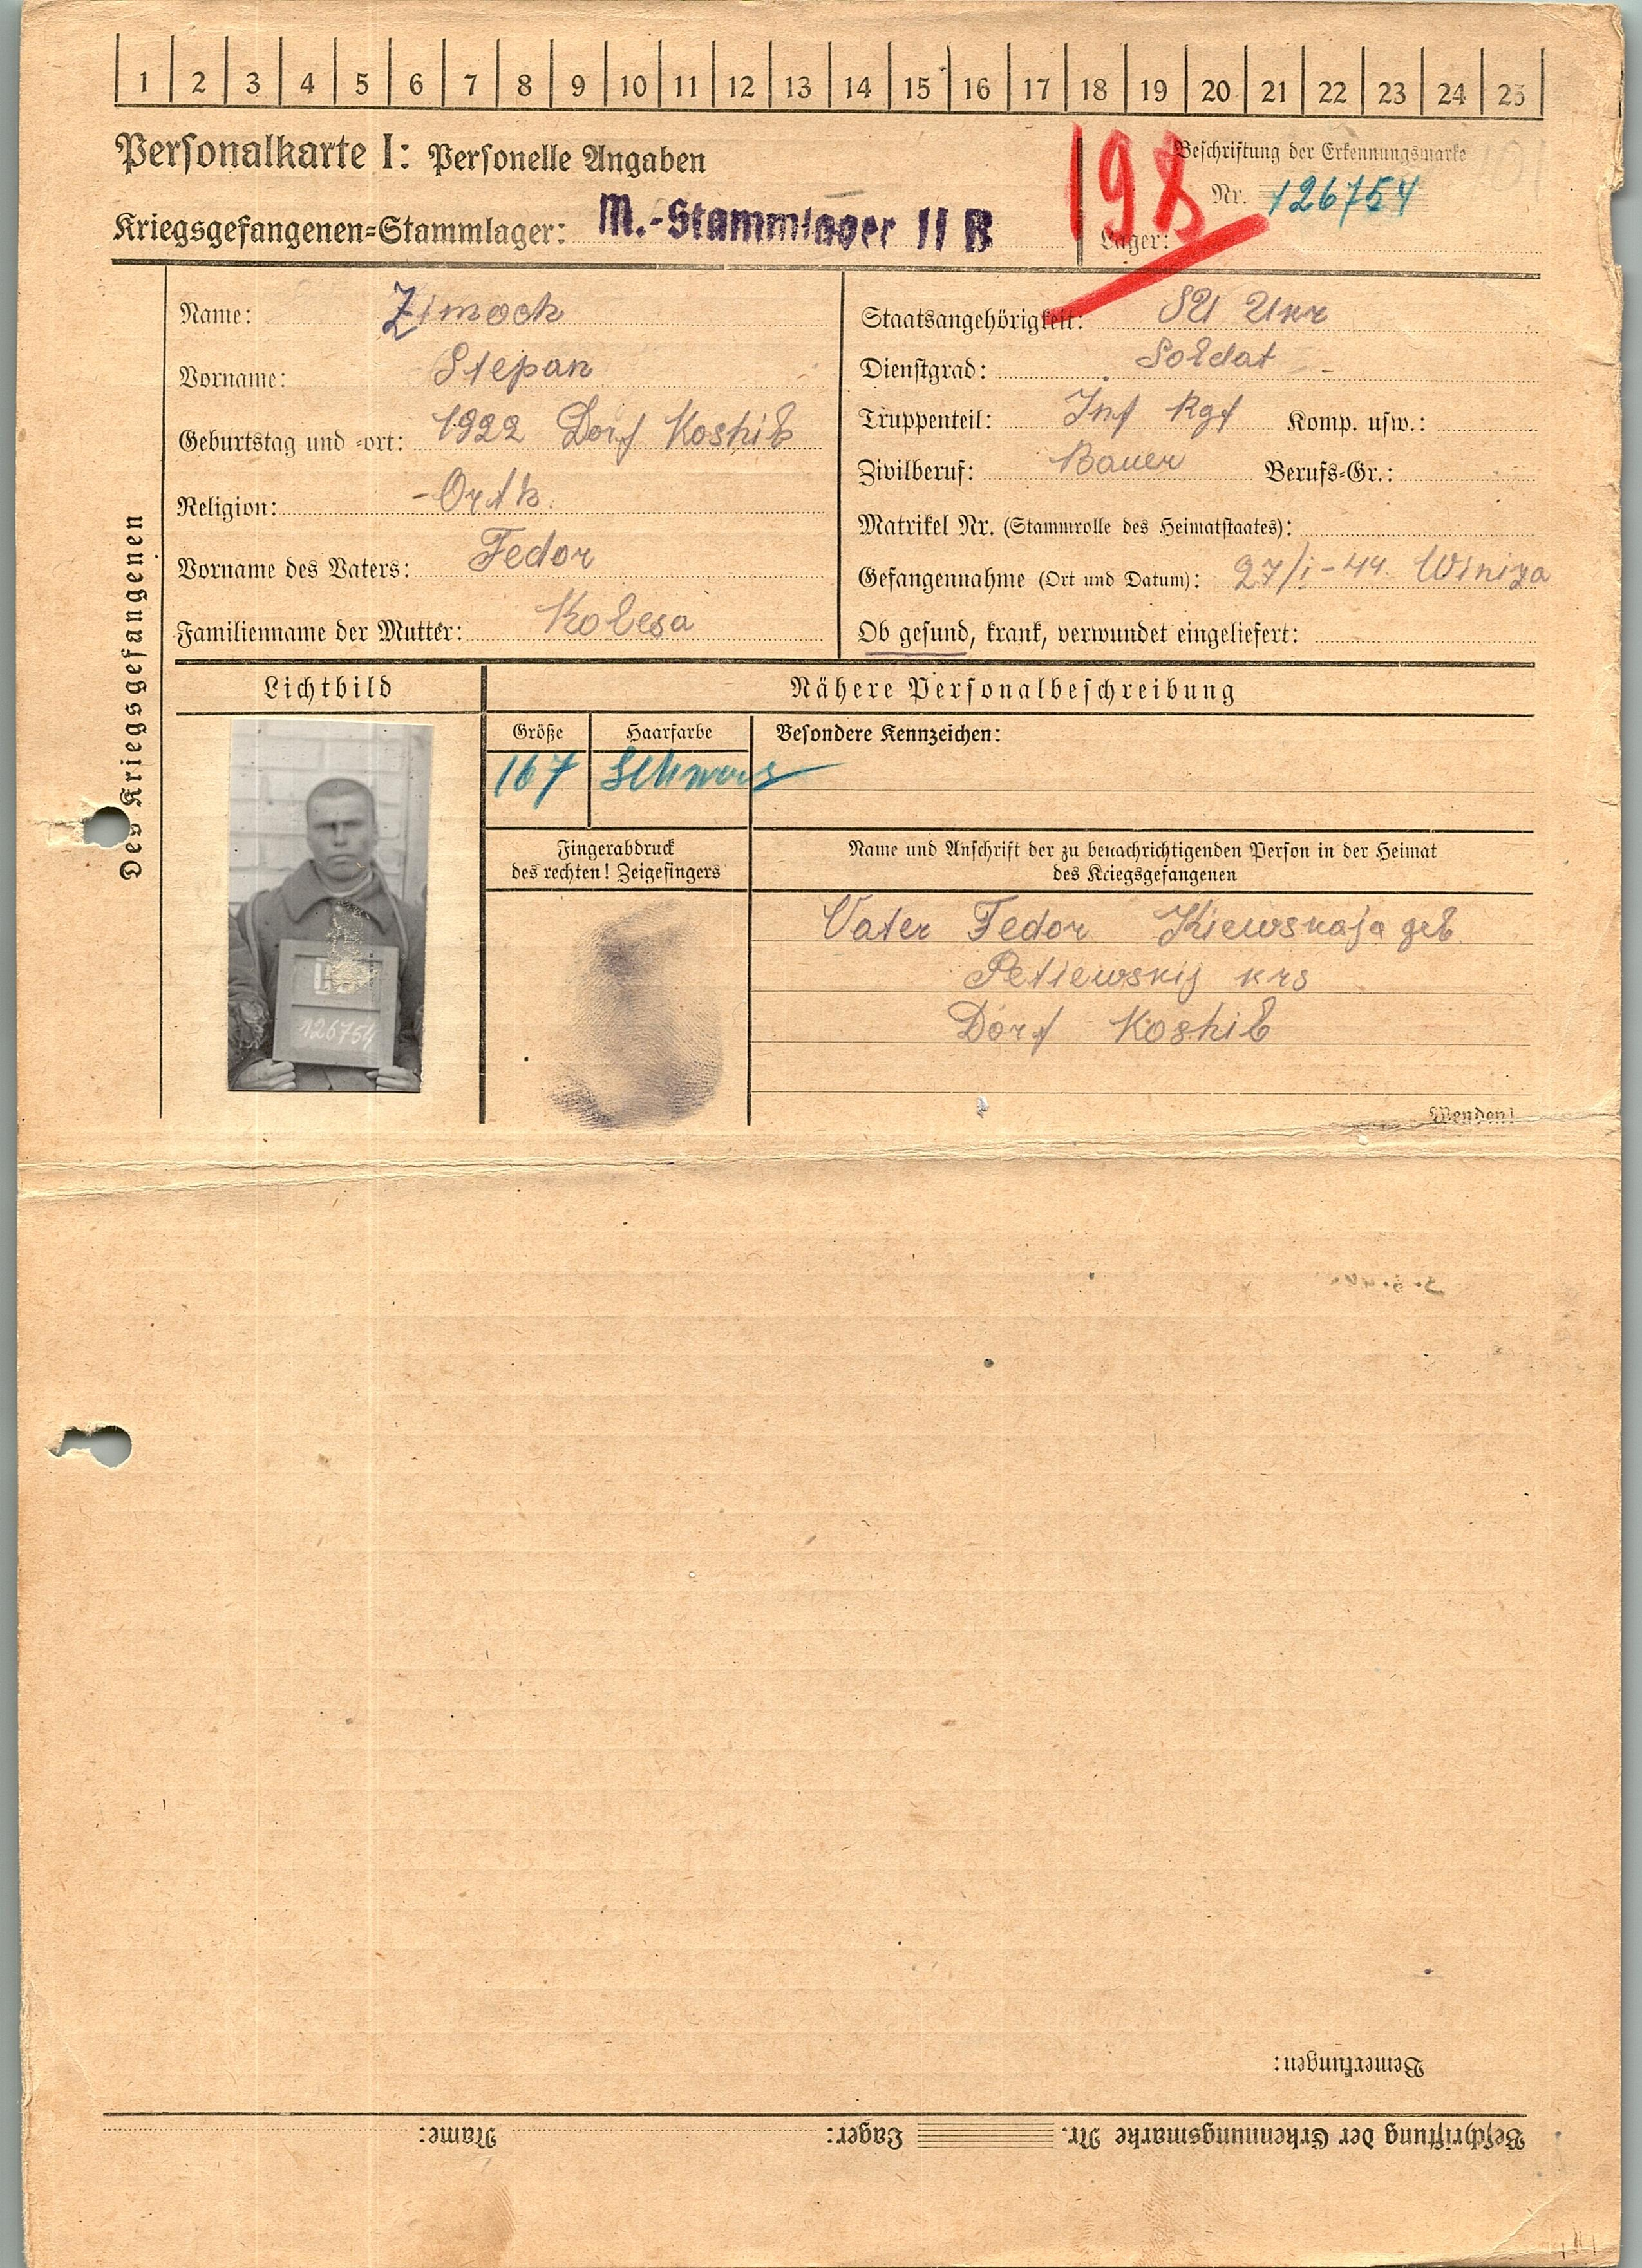 1 2 3 4 5 6 7 8 9 10 11 12 13 14 15 16 17 18 19 20 21 22 23 24 25
Personalkarte I: Personelle Angaben
Kriegsgefangenen-Stammlager: M.-Stammlager II B
198
Beschriftung der Erkennungsmarke
Nr. 126754
Lager:
Des Kriegsgefangenen
Name: Zimoch
Vorname: Stepan
Geburtstag und -ort: 1922 Dorf Koshib
Religion: Orth.
Vorname des Vaters: Fedor
Familienname der Mutter: Kolesa
Staatsangehörigkeit: SU Ukr
Dienstgrad: Soldat
Truppenteil: Inf Rgt Komp. usw.:
Zivilberuf: Bauer Berufs-Gr.:
Matrikel Nr. (Stammrolle des Heimatstaates):
Gefangennahme (Ort und Datum): 27/I-44 Winiza
Ob gesund, krank, verwundet eingeliefert:
Lichtbild
Nähere Personalbeschreibung
Größe Haarfarbe Besondere Kennzeichen:
167 Schwarz
Fingerabdruck
des rechten! Zeigefingers
Name und Anschrift der zu benachrichtigenden Person in der Heimat
des Kriegsgefangenen
Vater Fedor Kiewskaja geb
Petiewskij krs
Dorf Koshib
126754
Wenden!
Bemerkungen:
Beschriftung der Erkennungsmarke Nr. Lager: Name: